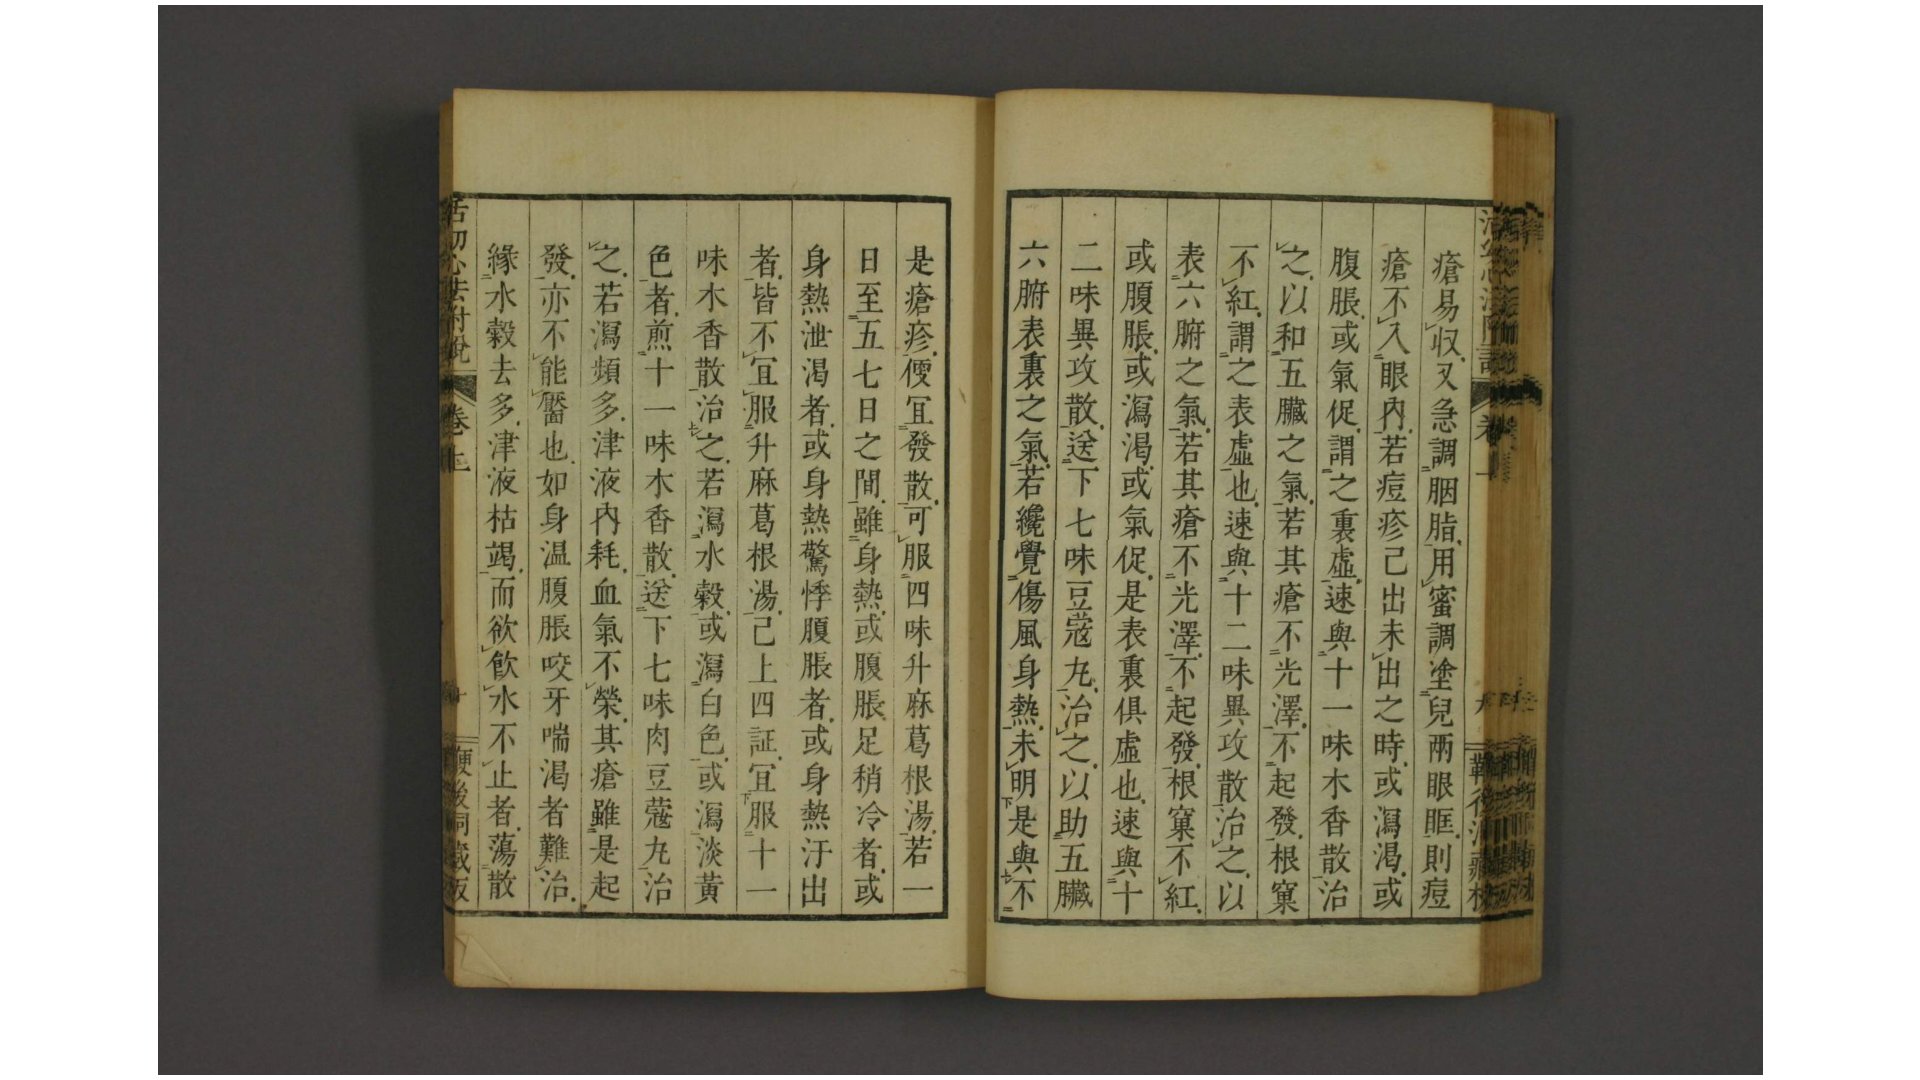 瘡易収又急調胭脂用蜜調塗兒兩眼眶則痘
瘡不入眼內若痘疹已出未出之時或瀉渴或
腹脹或氣促謂之裏虛速與十一味木香散治
之以和五臟之氣若其瘡不光澤不起發根窠
不紅謂之表虛也速與十二味異攻散治之以
表六腑之氣若其瘡不光澤不起發根窠不紅
或腹脹或瀉渴或氣促是表裏俱虛也速與十
二味異攻散送下七味豆蔻丸治之以助五臟
六腑表裏之氣若纔覺傷風身熱未明是與不
是瘡疹便冝發散可服四味升麻葛根湯若一
日至五七日之間雖身熱或腹脹足稍冷者或
身熱泄渴者或身熱驚悸腹脹者或身熱汗出
者皆不冝服升麻葛根湯已上四証冝服十一
味木香散治之若瀉水穀或瀉白色或瀉淡黃
色者煎十一味木香散送下七味肉豆蔻丸治
之若瀉頻多津液內耗血氣不榮其瘡雖是起
發亦不能靨也如身温腹脹咬牙喘渴者難治
緣水穀去多津液枯竭而欲飲水不止者蕩散
活幼心法附說 卷上 十